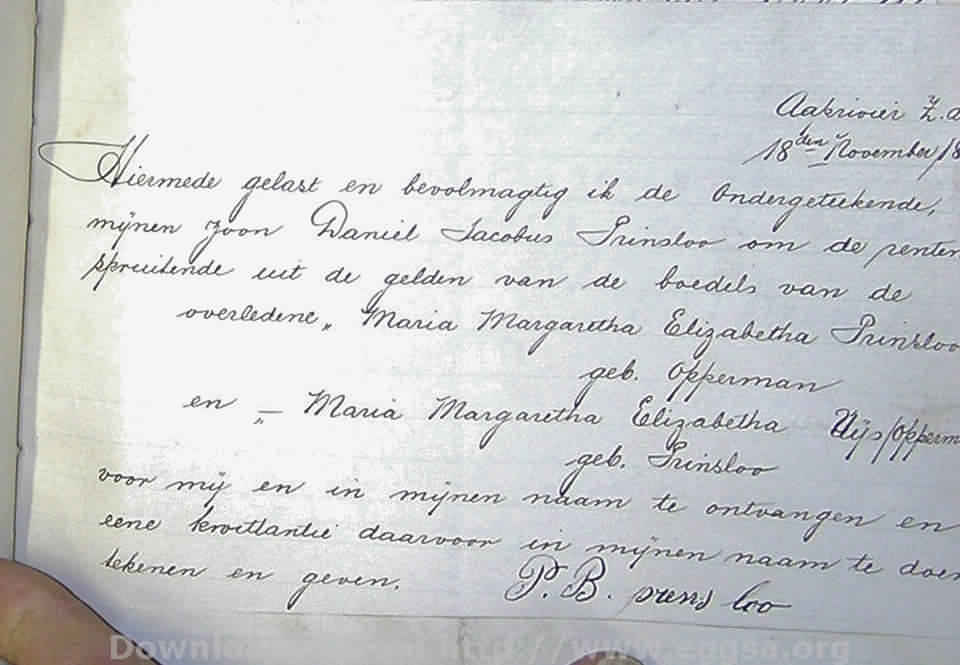 Aakrivier Z.A
18den November/18
Hiermede gelast en bevolmagtig ik de Ondergeteekende,
mijnen Zoon Daniel Jacobus Prinsloo om de renten
spruitende uit de gelden van de boedels van de
overledene „ Maria Margaretha Elizabetha Prinsloo
geb. Opperman
en „ — Maria Margaretha Elizabetha Uijs/Opperm
geb. Prinsloo
voor mij en in mijnen naam te ontvangen en
eene kwitlantie daarvoor in mijnen naam te doen
tekenen en geven.
P. B. prens loo
http://www.eggsa.org